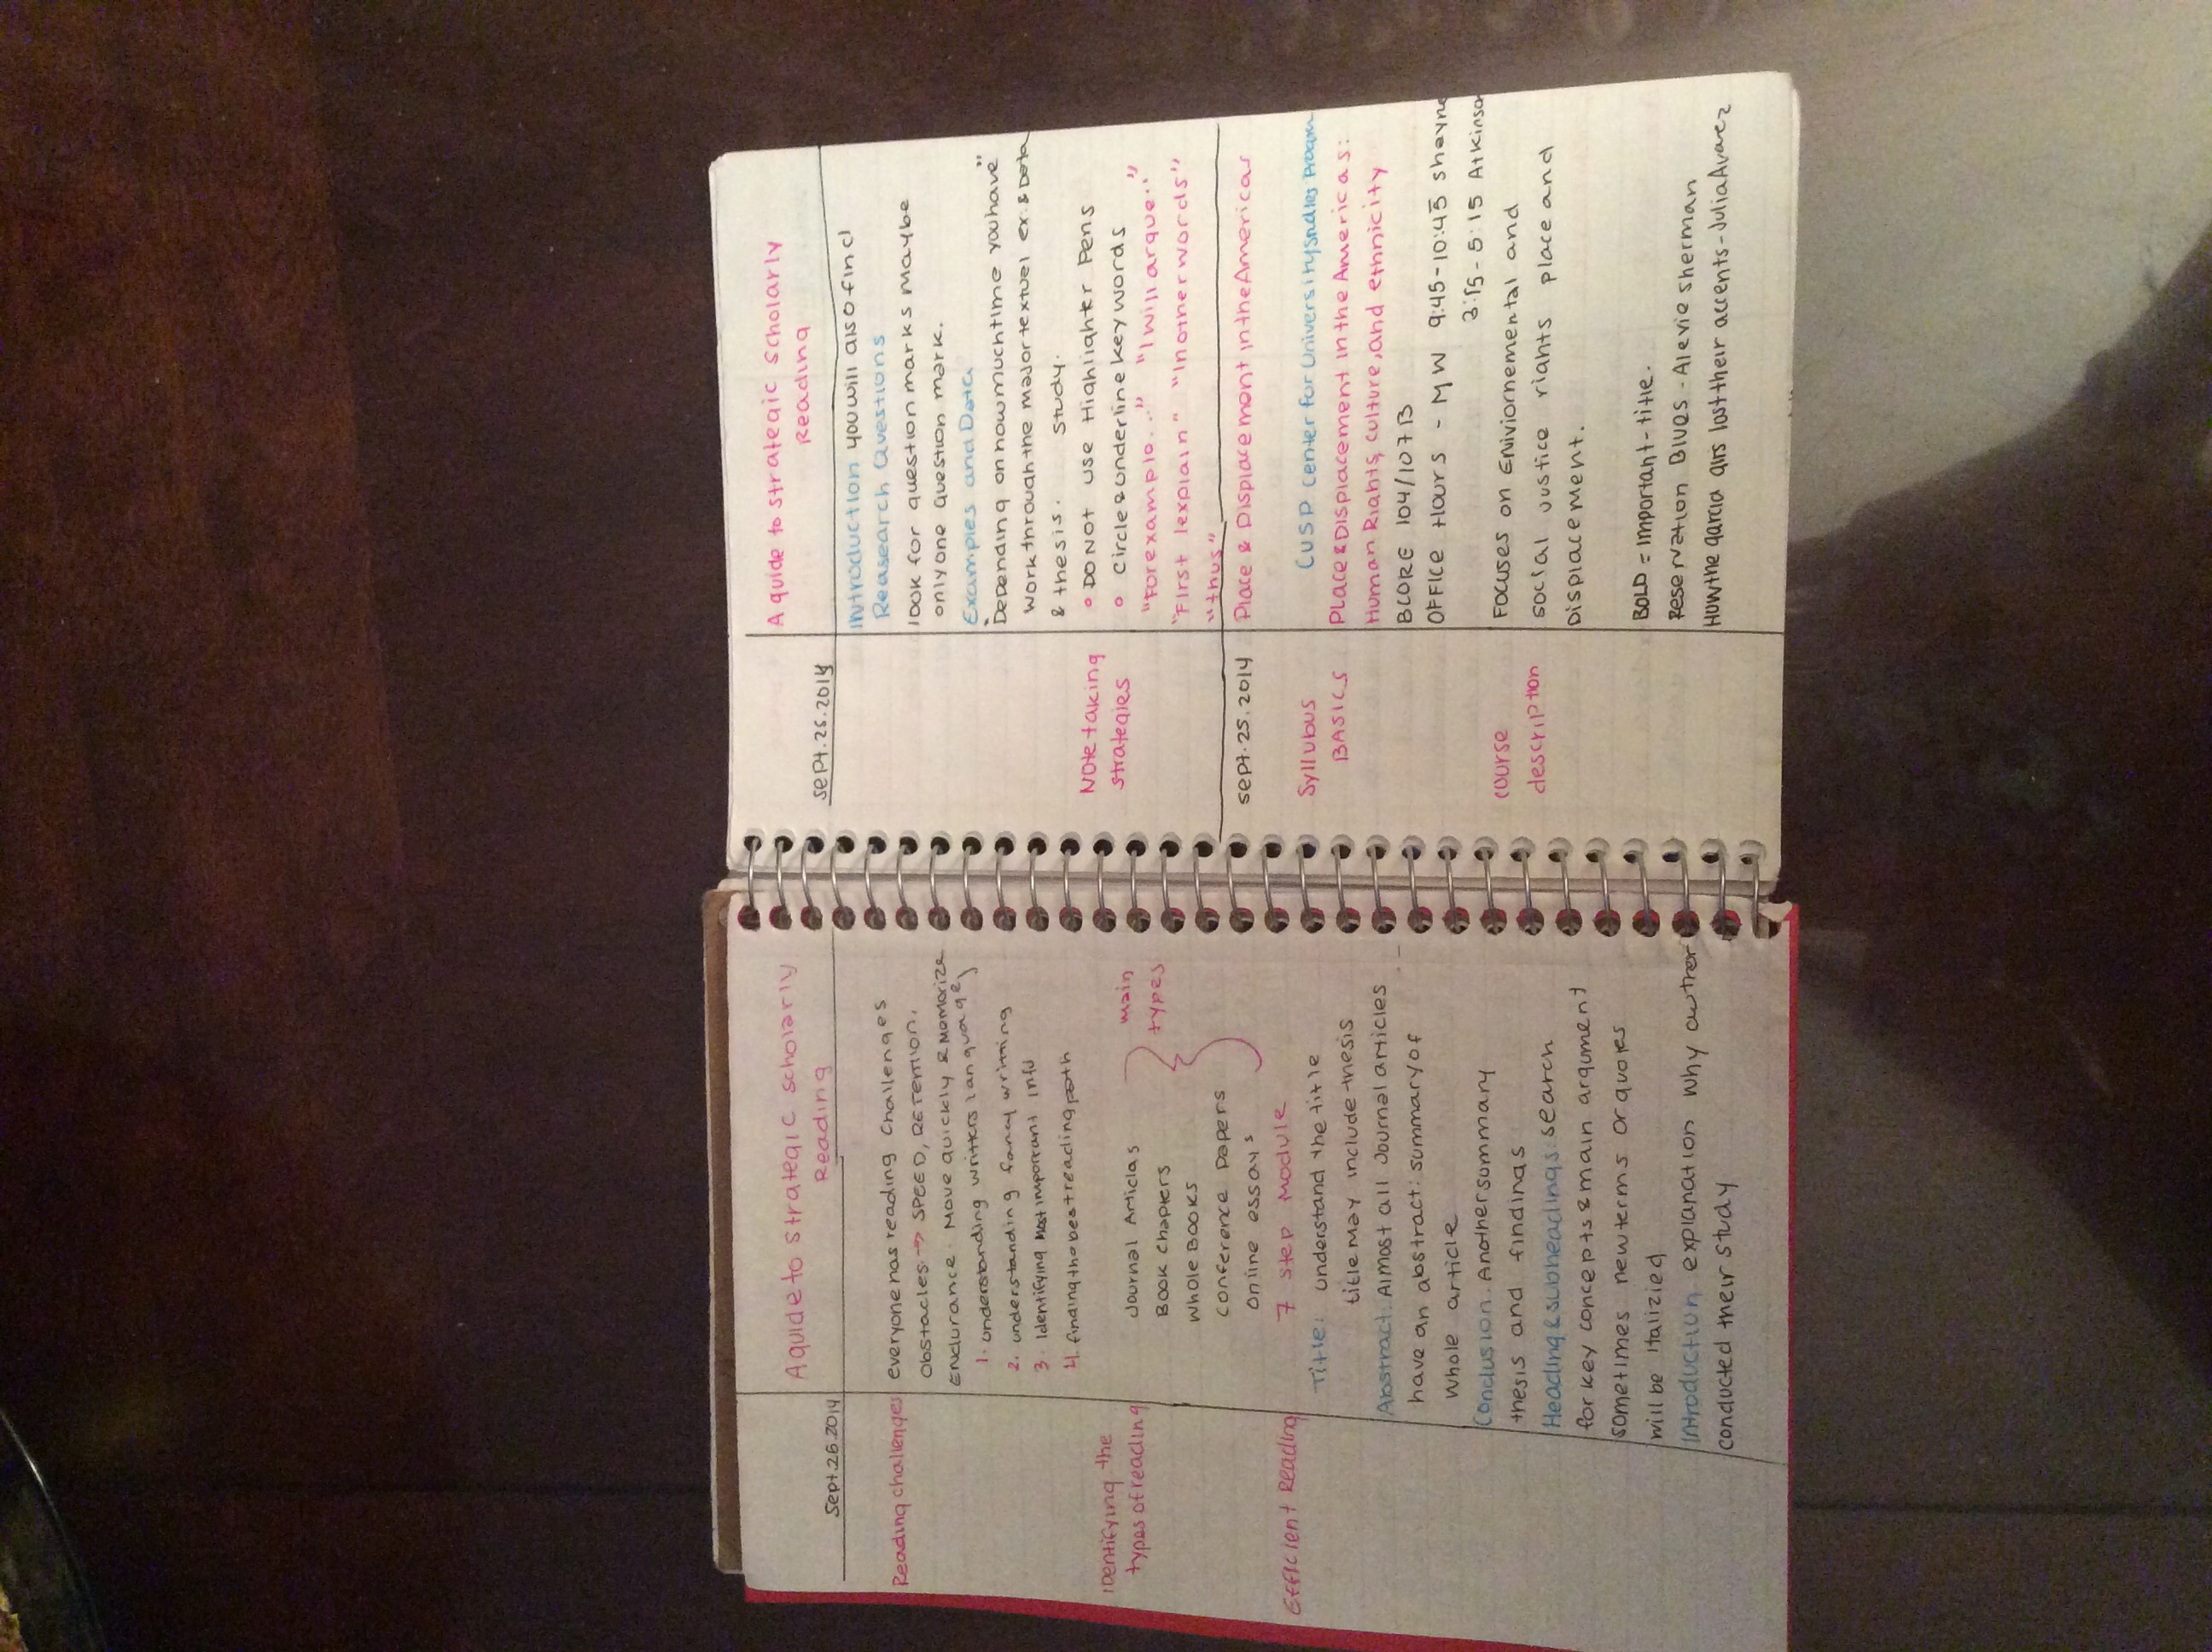 Sept.26.2014
A guide to strategic scholarly
Reading
Reading challenges
everyone has reading challenges
Obstacles → SPEED, RETENTION,
Endurance. Move quickly & Memorize
1. understanding writers language
2. understanding fancy writing
3. Identifying most important info
4. finding the best reading path
Identifying the
types of reading
Journal Articles
Book Chapters
Whole Books
Conference Papers
Online essays
main
types
Efficient Reading
7 step Module
Title: understand the title
title may include thesis
Abstract: Almost all Journal articles
have an abstract: summary of
whole article
Conclusion. Another summary
thesis and findings
Heading & subheadings: search
for key concepts & main argument
sometimes new terms or quotes
will be italizied
Introduction explanation why author
conducted their study
Sept.26.2014
A guide to strategic scholarly
Reading
Introduction you will also find
Reasearch Questions
look for question marks maybe
only one question mark.
Examples and Data
Depending on how much time you have"
work through the major textuel ex. & Data
& thesis. Study.
Note taking
strategies
DO NOT use Highlighter Pens
Circle & underline key words
"For example..." "I will argue..."
"First I explain" "In other words"
"thus"
Sept.25.2014
Place & Displacement in the Americas
Syllubus
BASICS
CUSP Center for University Studies Program
Place & Displacement in the Americas:
Human Rights, culture, and ethnicity
BCORE 104/107B
OFFICE Hours - MW 9:45-10:45 Shayne
3:15-5:15 Atkinson
course
description
Focuses on Enviornemental and
social justice rights place and
Displacement.
BOLD = Important - title.
Reservation Blues - Alexie Sherman
How the garcia girls lost their accents - Julia Avarez